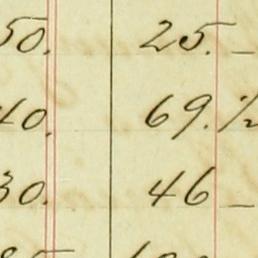 50. 25. —
40 69.½
30. 46 —